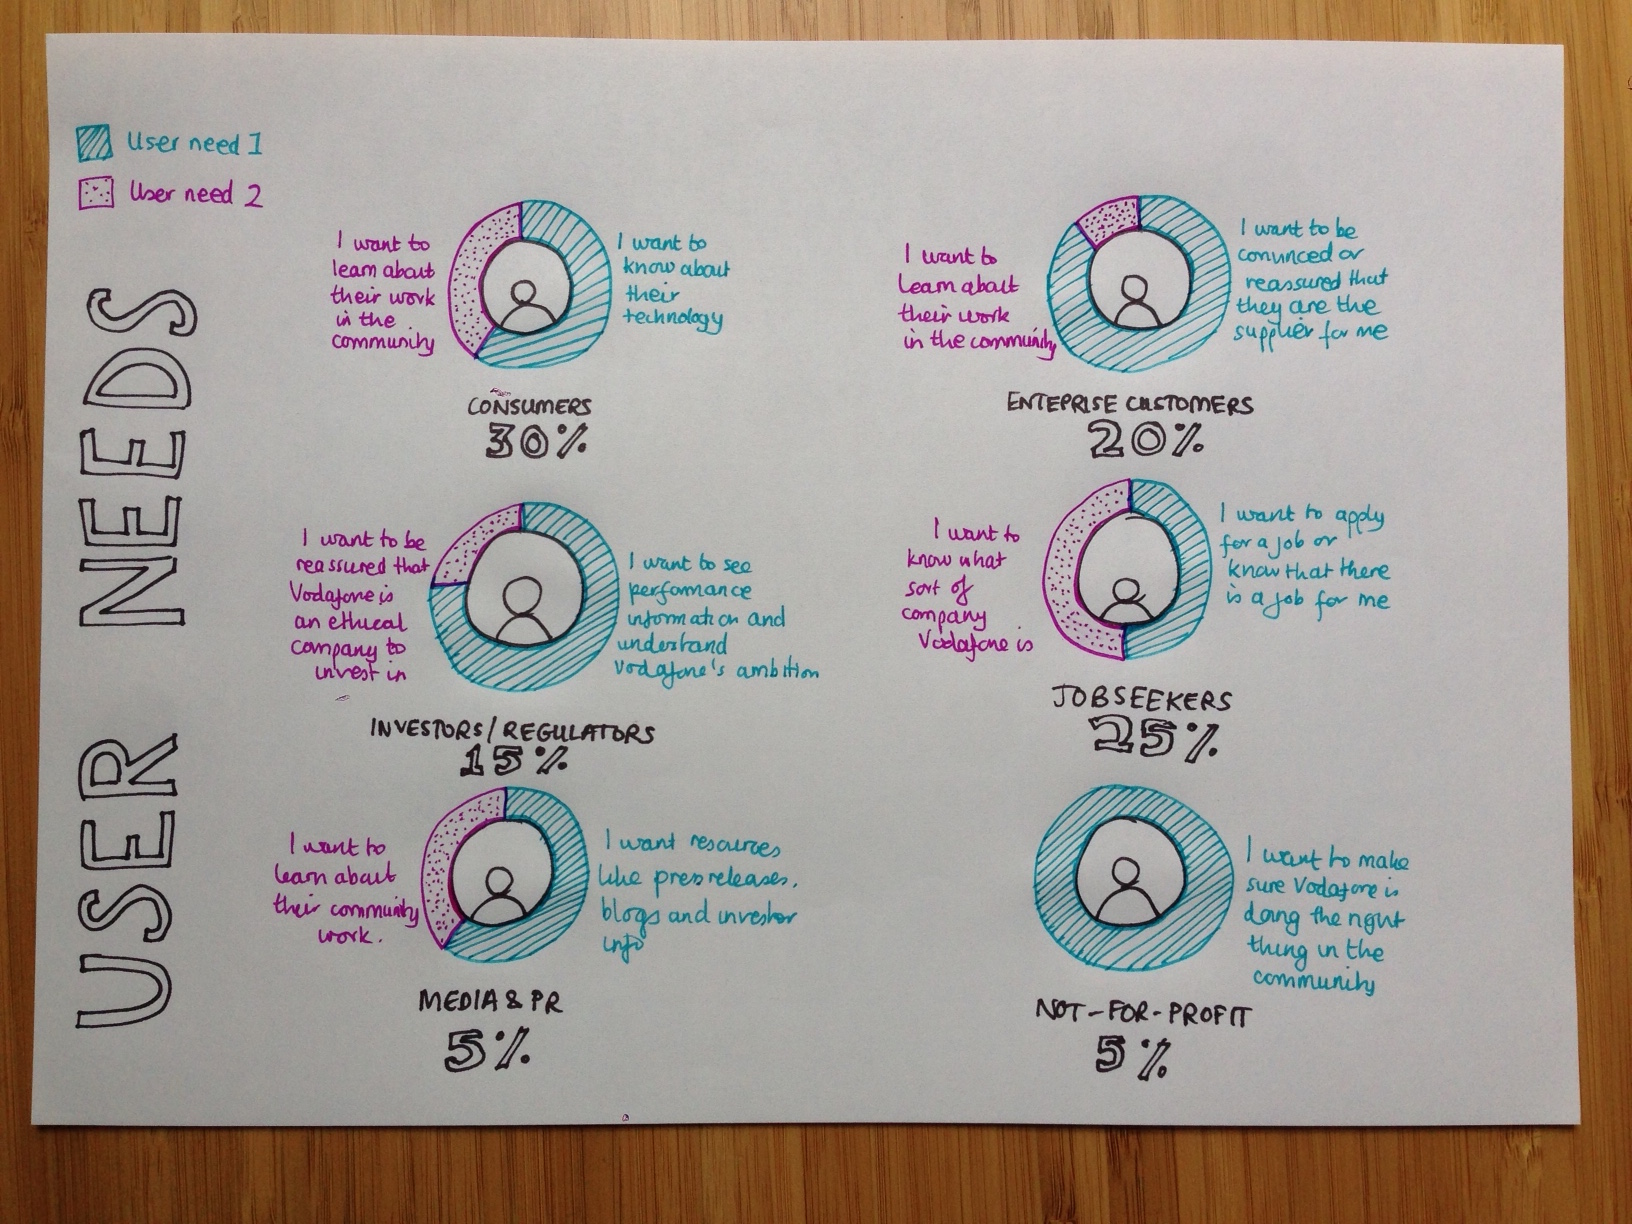 User need 1
User need 2
USER NEEDS
I want to
learn about
their work
in the
community
I want to
know about
their
technology
CONSUMERS
30%
I want to
learn about
their work
in the community
I want to be
convinced or
reassured that
they are the
supplier for me
ENTEPRISE CUSTOMERS
20%
I want to be
reassured that
Vodafone is
an ethical
company to
invest in
I want to see
performance
information and
understand
Vodafone's ambition
INVESTORS/REGULATORS
15%
I want to
know what
sort of
company
Vodafone is
I want to apply
for a job or
know that there
is a job for me
JOBSEEKERS
25%
I want to
learn about
their community
work.
I want resources
like press releases,
blogs and investor
info
MEDIA & PR
5%
I want to make
sure Vodafone is
doing the right
thing in the
community
NOT-FOR-PROFIT
5%